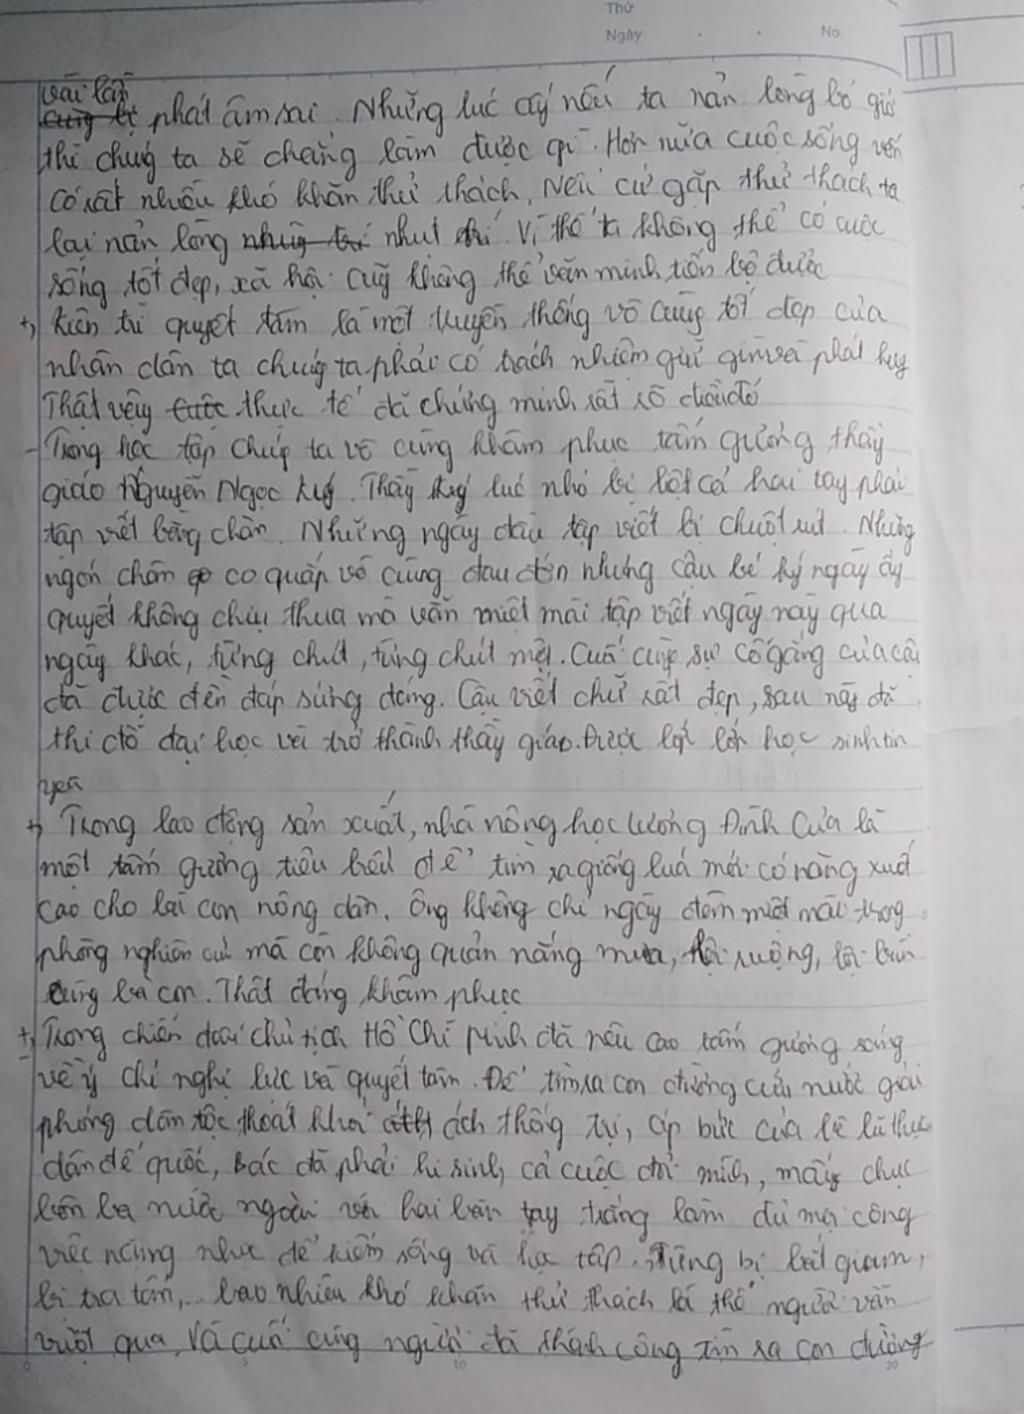 Thứ
Ngày No.
vài lần
phát âm sai. Những lúc ấy nếu ta nản lòng bỏ giữa
thì chúng ta sẽ chẳng làm được gì. Hơn nữa cuộc sống vốn
có rất nhiều khó khăn thử thách. Nếu cứ gặp thử thách ta
lại nản lòng như thế. Vì thế ta không thể có cuộc
sống tốt đẹp, xã hội cũng không thể văn minh tiến bộ được
+, Kiên trì quyết tâm là một truyền thống vô cùng tốt đẹp của
nhân dân ta chúng ta phải có trách nhiệm giữ gìn và phát huy
Thật vậy thực tế đã chứng minh rất rõ điều đó
- Trong học tập chúng ta vô cùng khâm phục tấm gương thầy
giáo Nguyễn Ngọc Ký. Thầy Ký lúc nhỏ bị liệt cả hai tay phải
tập viết bằng chân. Những ngày đầu tập viết bị chuột rút. Những
ngón chân co quắp vô cùng đau đớn nhưng cậu bé Ký ngày ấy
quyết không chịu thua mà vẫn miệt mài tập viết ngày này qua
ngày khác, từng chút, từng chút một. Cuối cùng sự cố gắng của cậu
đã được đền đáp xứng đáng. Cậu viết chữ rất đẹp, sau này đã
thi đỗ đại học và trở thành thầy giáo. Được lớp lớp học sinh tin
yêu
+, Trong lao động sản xuất, nhà nông học Lương Đình Của là
một tấm gương tiêu biểu để tìm ra giống luá mới có năng xuất
cao cho bà con nông dân. Ông không chỉ ngày đêm miệt mài trong
phòng nghiên cứu mà còn không quản nắng mưa, lội ruộng, lội bùn
cùng bà con. Thật đáng khâm phục
+, Trong chiến đấu chủ tịch Hồ Chí Minh đã nêu cao tấm gương sáng
về ý chí nghị lực và quyết tâm. Để tìm ra con đường cứu nước giải
phóng dân tộc thoát khỏi ách thống trị, áp bức của bè lũ thực
dân đế quốc, Bác đã phải hi sinh cả cuộc đời mình, mấy chục
năm bôn ba nước ngoài với hai bàn tay trắng làm đủ mọi công
việc nặng nhọc để kiếm sống và học tập. Từng bị bắt giam,
bị tra tấn,... bao nhiêu khó khăn thử thách là thế người vẫn
vượt qua. Và cuối cùng người đã thành công tìm ra con đường